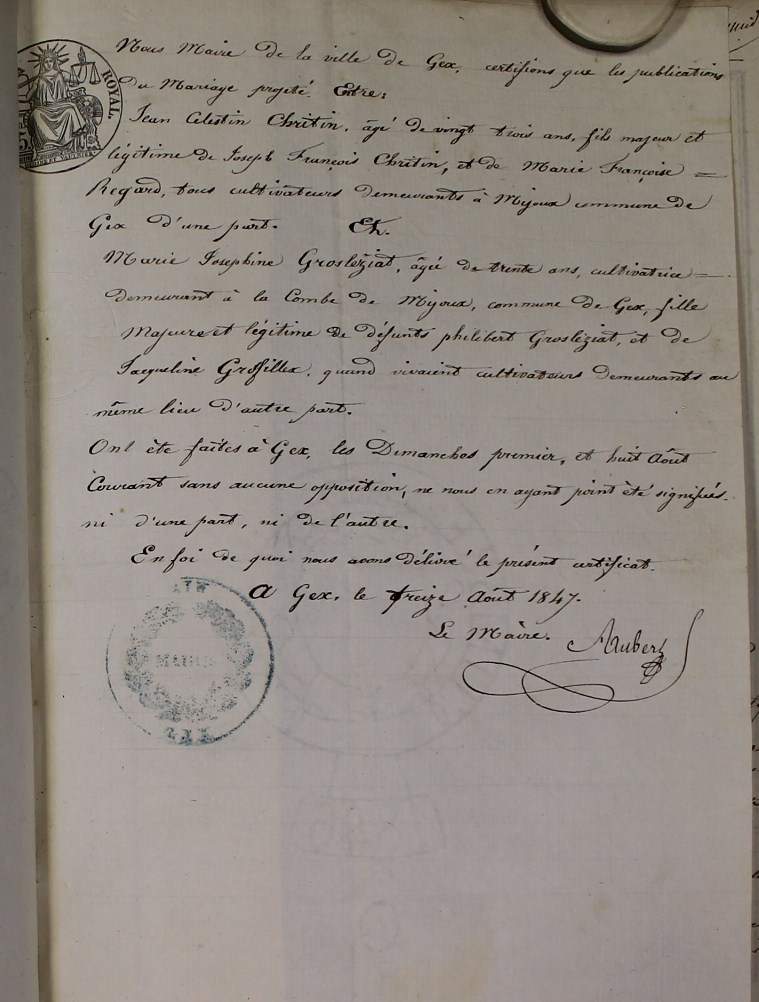 ROYAL
Nous Maire de la ville de Gex, certifions que les publications
du Mariage projeté. Entre:
Jean Célestin Chritin, âgé de vingt trois ans, fils majeur et
légitime de Joseph François Chritin, et de Marie Françoise =
Regard, tous cultivateurs demeurants à Mijoux commune de
Gex d'une part. Et.
Marie Josephine Grosléziat, âgée de trente ans, cultivatrice =
demeurant à la Combe de Mijoux, commune de Gex, fille
Majeure et légitime de défunts philibert Grosléziat, et de
Jacqueline Grosfillex, quand vivaient cultivateurs demeurants au
même lieu d'autre part.
Ont été faites à Gex, les Dimanches premier, et huit Août
Courant sans aucune opposition, ne nous en ayant point été signifiés.
ni d'une part, ni de l'autre.
En foi de quoi nous avons délivré le présent certificat.
A Gex, le treize Août 1847.
Le Maire.
AIN
MAIRIE
GEX